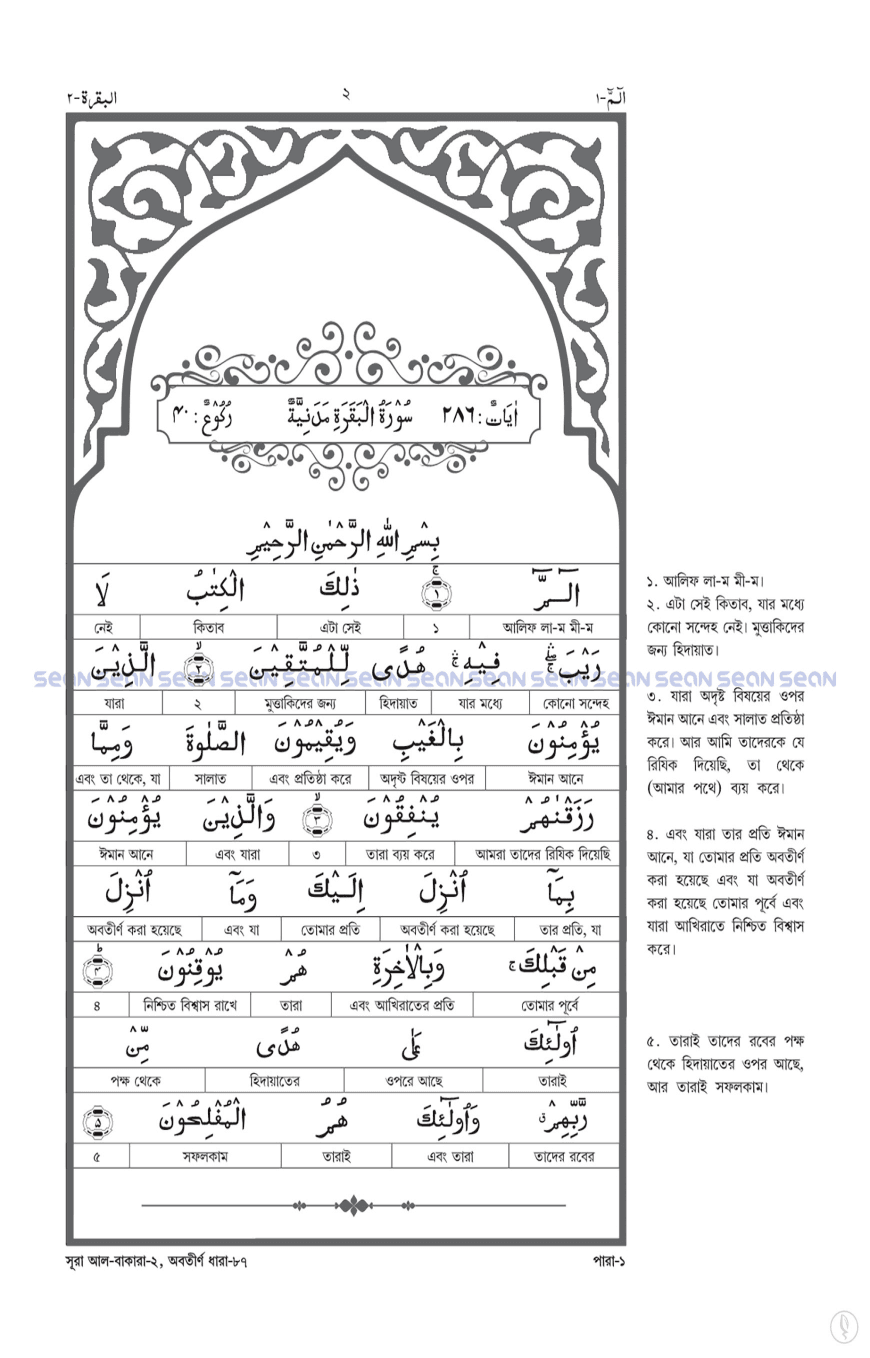 الٓمّٓ-١ ٢ البقرة-٢
اٰيَاتٌ : ٢٨٦ سُوْرَةُ الْبَقَرَةِ مَدَنِيَّةٌ رُكُوْعٌ : ۴٠
بِسْمِ اللهِ الرَّحْمٰنِ الرَّحِيْمِ
الٓمّٓ ۚ ١ ذٰلِكَ الْكِتٰبُ لَا
নেই কিতাব এটা সেই ১ আলিফ লা-ম মী-ম
رَيْبَ ۛۖ فِيْهِ ۛۚ هُدًى لِّلْمُتَّقِيْنَ ۙ ٢ الَّذِيْنَ
যারা ২ মুত্তাকিদের জন্য হিদায়াত যার মধ্যে কোনো সন্দেহ
يُؤْمِنُوْنَ بِالْغَيْبِ وَيُقِيْمُوْنَ الصَّلٰوةَ وَمِمَّا
এবং তা থেকে, যা সালাত এবং প্রতিষ্ঠা করে অদৃষ্ট বিষয়ের ওপর ঈমান আনে
رَزَقْنٰهُمْ يُنْفِقُوْنَ ۙ ٣ وَالَّذِيْنَ يُؤْمِنُوْنَ
ঈমান আনে এবং যারা ৩ তারা ব্যয় করে আমরা তাদের রিযিক দিয়েছি
بِمَآ اُنْزِلَ اِلَيْكَ وَمَآ اُنْزِلَ
অবতীর্ণ করা হয়েছে এবং যা তোমার প্রতি অবতীর্ণ করা হয়েছে তার প্রতি, যা
مِنْ قَبْلِكَ ۚ وَبِالْاٰخِرَةِ هُمْ يُوْقِنُوْنَ ؕ ۴
৪ নিশ্চিত বিশ্বাস রাখে তারা এবং আখিরাতের প্রতি তোমার পূর্বে
اُولٰٓئِكَ عَلٰى هُدًى مِّنْ
পক্ষ থেকে হিদায়াতের ওপরে আছে তারাই
رَّبِّهِمْ ۗ وَاُولٰٓئِكَ هُمُ الْمُفْلِحُوْنَ ۵
৫ সফলকাম তারাই এবং তারা তাদের রবের
১. আলিফ লা-ম মী-ম।
২. এটা সেই কিতাব, যার মধ্যে
কোনো সন্দেহ নেই। মুত্তাকিদের
জন্য হিদায়াত।
৩. যারা অদৃষ্ট বিষয়ের ওপর
ঈমান আনে এবং সালাত প্রতিষ্ঠা
করে। আর আমি তাদেরকে যে
রিযিক দিয়েছি, তা থেকে
(আমার পথে) ব্যয় করে।
৪. এবং যারা তার প্রতি ঈমান
আনে, যা তোমার প্রতি অবতীর্ণ
করা হয়েছে এবং যা অবতীর্ণ
করা হয়েছে তোমার পূর্বে এবং
যারা আখিরাতে নিশ্চিত বিশ্বাস
করে।
৫. তারাই তাদের রবের পক্ষ
থেকে হিদায়াতের ওপর আছে,
আর তারাই সফলকাম।
sean sean sean sean sean sean sean sean sean sean sean sean sean
সূরা আল-বাকারা-২, অবতীর্ণ ধারা-৮৭ পারা-১